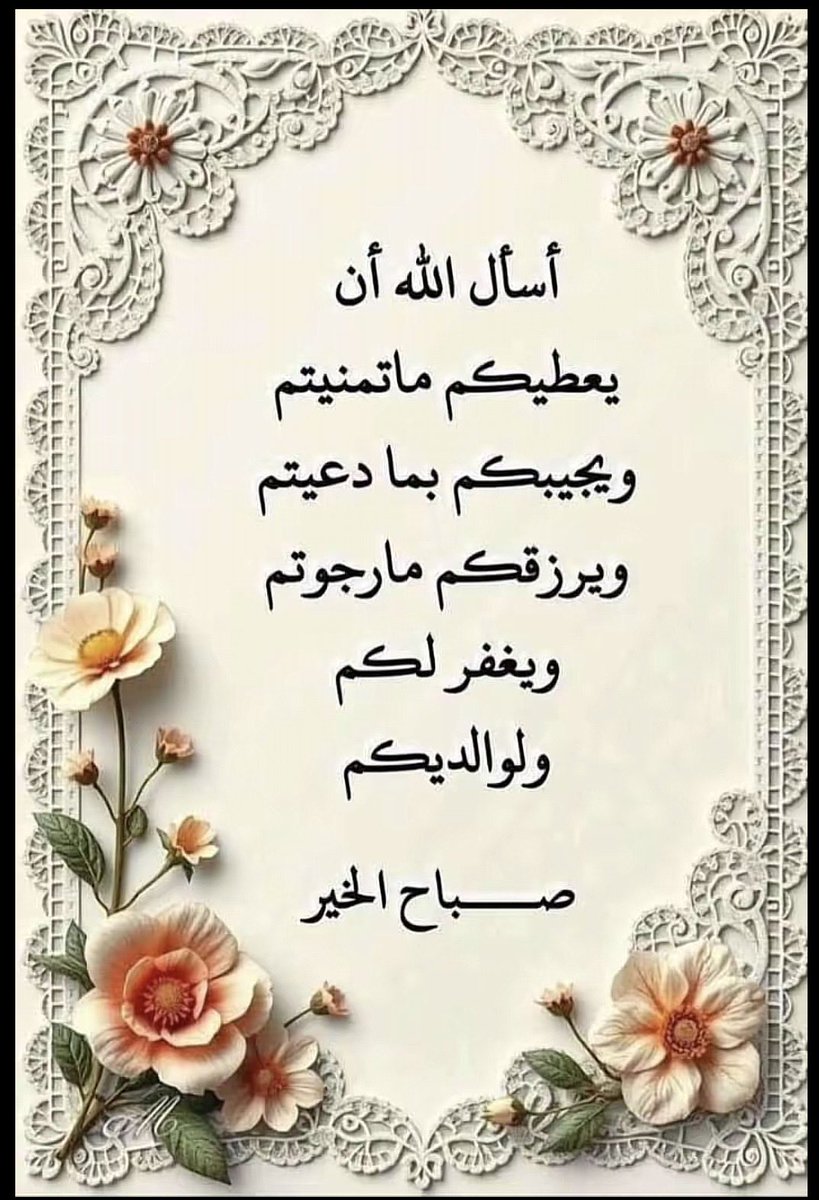 أسأل الله أن
يعطيكم ماتمنيتم
ويجيبكم بما دعيتم
ويرزقكم مارجوتم
ويغفر لكم
ولوالديكم
صـــباح الخير